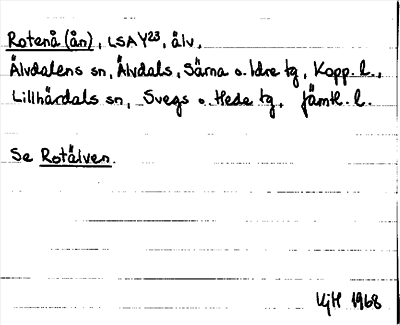 Rotenå (ån), LSA Y23, älv,
Älvdalens sn, Älvdals, Särna o. Idre tg, Kopp. l.,
Lillhärdals sn, Svegs o. Hede tg, Jämtl. l.
Se Rotälven.
VjH 1968